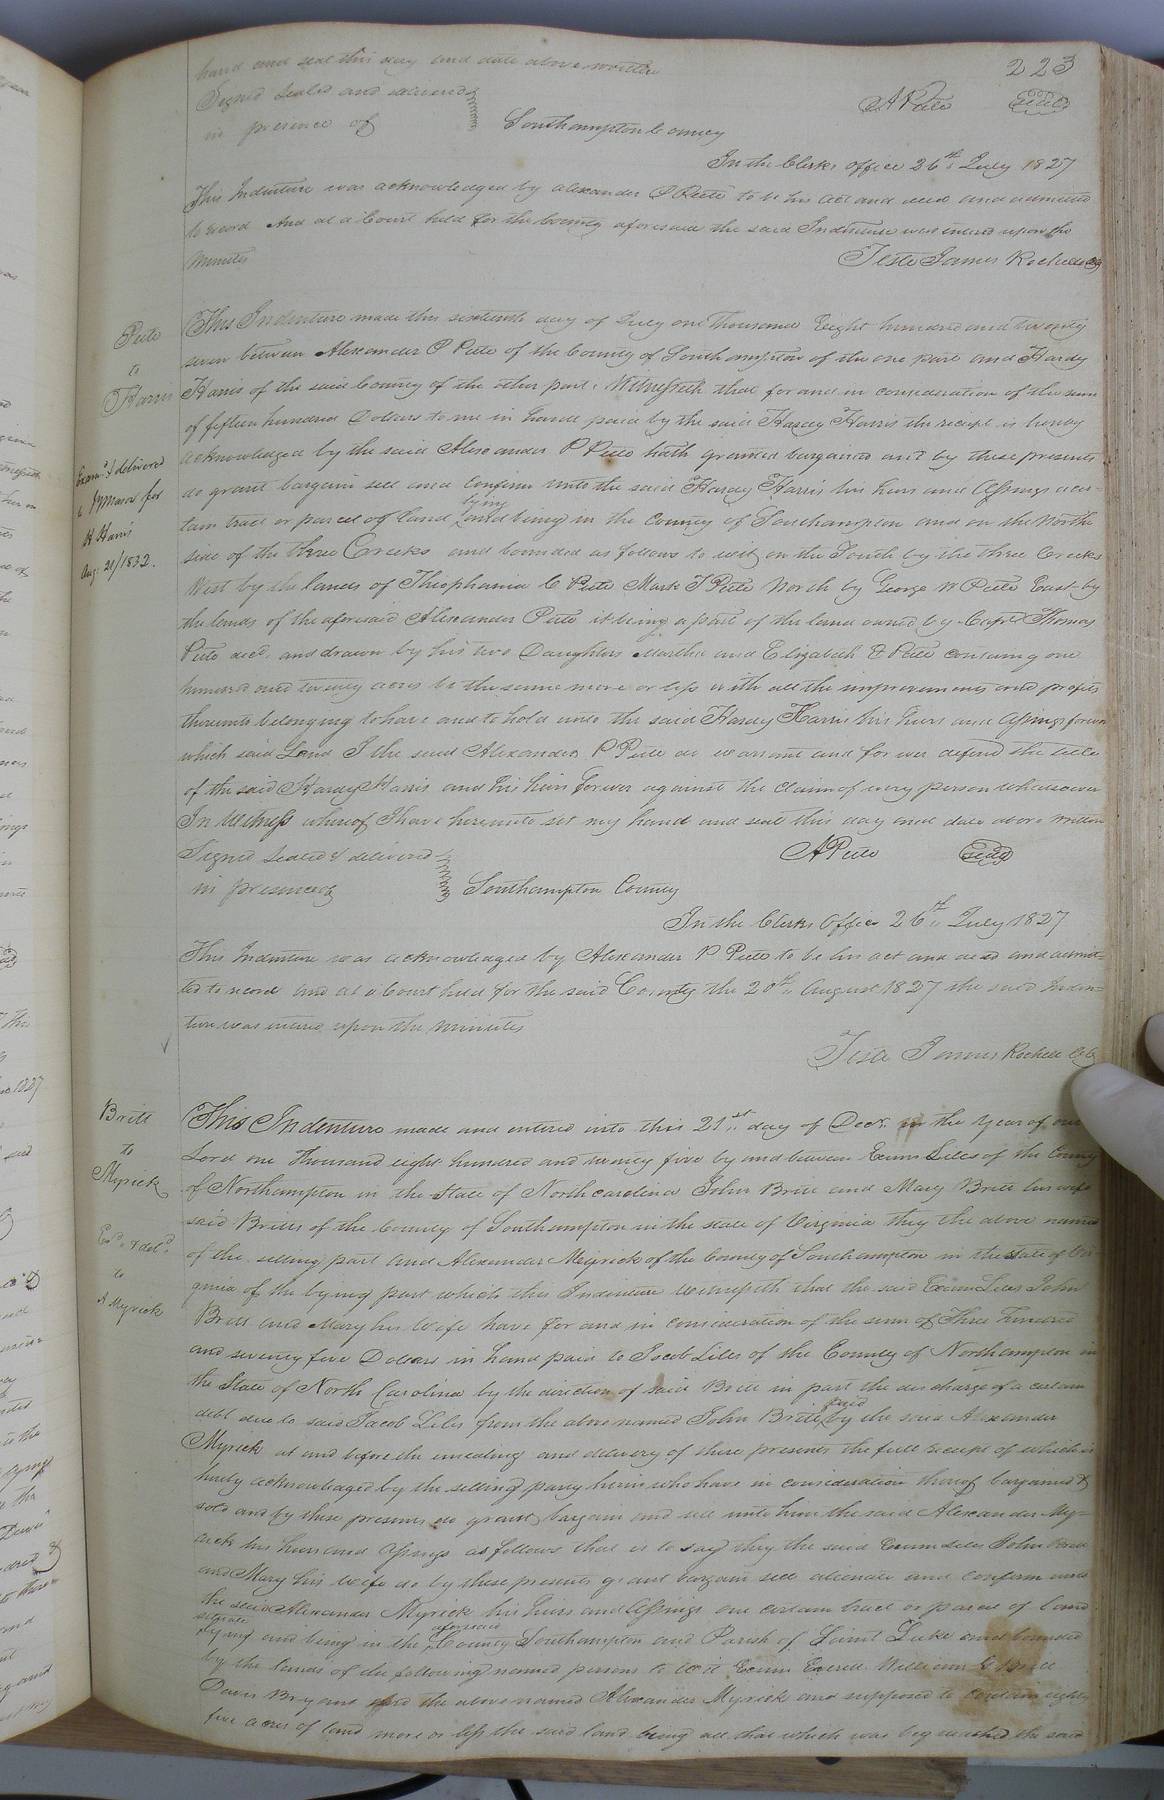 223
hand and seal this day and date above written
Signed Sealed and delivered
in presence of
A Pete Seal
Southampton County
In the Clerks office 26th July 1827
This Indenture was acknowledged by Alexander P Pete to be his act and deed and admitted
to record And at a Court held for the County aforesaid the said Indenture was entered upon the
minutes
Teste James Rochelle
Pete
to
Harris
Exam.d & delivered
to for
H Harris
Aug. 21/1832.
This Indenture made this sixteenth day of July one Thousand Eight hundred and twenty
seven between Alexander P Pete of the County of Southampton of the one part and Hardy
Harris of the said County of the other part: Witnesseth that for and in consideration of the sum
of fifteen hundred Dollars to me in hand paid by the said Hardy Harris the receipt is hereby
acknowledged by the said Alexander P Pete hath granted bargained and by these presents
do grant bargain sell and confirm unto the said Hardy Harris his heirs and Assings a cer-
tain tract or parcel of land lying and being in the County of Southampton and on the North
side of the three Creeks and bounded as follows to wit, on the South by the three Creeks
West by the lands of Theophania C Pete Mark J Pete North by George W Pete East by
the lands of the aforesaid Alexander Pete it being a part of the land owned by Capt Thomas
Pete decd. and drawn by his two Daughters Martha and Elizabeth F Pete containg one
hundred and twenty acres be the same more or less with all the improvements and profits
thereunto belonging to have and to hold unto the said Hardy Harris his heirs and Assings forever
which said Land I the said Alexander P Pete do warrant and for ever defend the title
of the said Hardy Harris and his heirs forever against the claim of every person whatsoever
In Witness whereof I have hereunto set my hand and seal this day and date above written
Signed Sealed & delivered
in presence of
A Pete Seal
Southampton County
In the Clerks Office 26th July 1827
This Indenture was acknowledged by Alexander P Pete to be his act and deed and admit-
ted to record and at a Court held for the said County the 20th August 1827 the said Inden-
ture was entered upon the minutes
Teste James Rochelle
Britt
to
Myrick
Ex.d & del.d
to
A Myrick
This Indenture made and entered into this 21st day of Decr. in the year of our
Lord one Thousand eight hundred and twenty five by and between Exum Liles of the County
of Northampton in the State of North carolina John Britt and Mary Britt his wife
said Britts of the County of Southampton in the state of Virginia they the above named
of the selling part and Alexander Myrick of the County of Southampton in the State of Vir-
ginia of the bying part which this Indenture witnesseth that the said Exum Liles John
Britt and Mary his Wife have for and in consideration of the sum of Three hundred
and seventy five Dollars in hand paid to Jacob Liles of the County of Northampton in
the State of North Carolina by the direction of said Britt in part the discharge of a certain
debt due to said Jacob Liles from the above named John Britt, paid by the said Alexander
Myrick at and before the ensealing and delivery of these presents the full receipt of which is
hereby acknowledged by the selling party herein who have in consideration thereof bargained &
sold and by these presents do grant, bargain and sell unto him the said Alexander My-
rick his heirs and Assings as follows that is to say they the said Exum Liles John Britt
and Mary his wife do by these presents grant bargain sell alienate and confirm unto
the said Alexander Myrick his heirs and Assings one certain tract or parcel of land
situate
lying and being in the aforesaid County Southampton and Parish of Saint Luke and bounded
by the lands of the following named persons to wit Exum Everett William G Britt
Davis Bryant and the above named Alexander Myrick and supposed to contain eighty
five acres of land more or less the said land being all that which was bequeathed the said